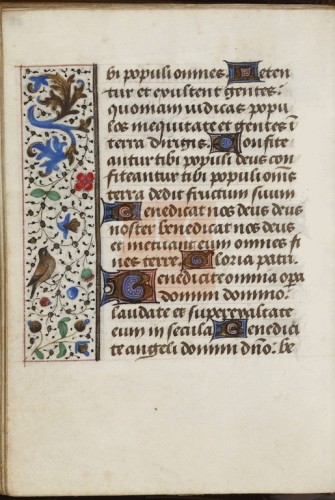 bi populi omnes. Leten
tur et exultent gentes:
quoniam iudicas popu
los in equitate et gentes ī
terra dirigis. Confite
antur tibi populi deus con
fiteantur tibi populi om̄s
terra dedit fructum suum
Benedicat nos deus deus
noster benedicat nos deus
et metuant eum omnes fi
nes terre. Gloria patri.
Benedicite omnia opa
domini domino:
laudate et superexaltate
eum in secula. Benedici
te angeli domini dn̄o. be